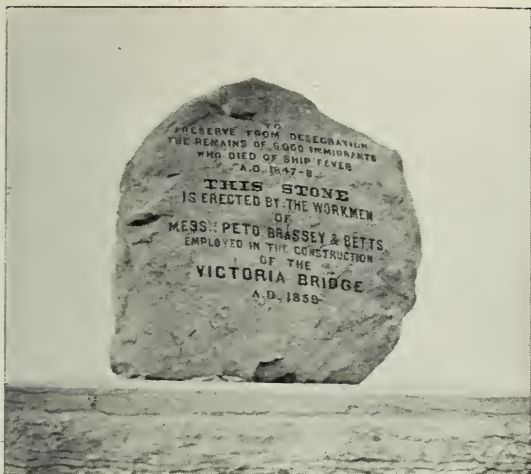 TO
PRESERVE FROM DESECRATION
THE REMAINS OF 6000 IMMIGRANTS
WHO DIED OF SHIP FEVER
A.D. 1847-8
THIS STONE
IS ERECTED BY THE WORKMEN
OF
MESSRS PETO, BRASSEY & BETTS
EMPLOYED IN THE CONSTRUCTION
OF THE
VICTORIA BRIDGE
A.D. 1859